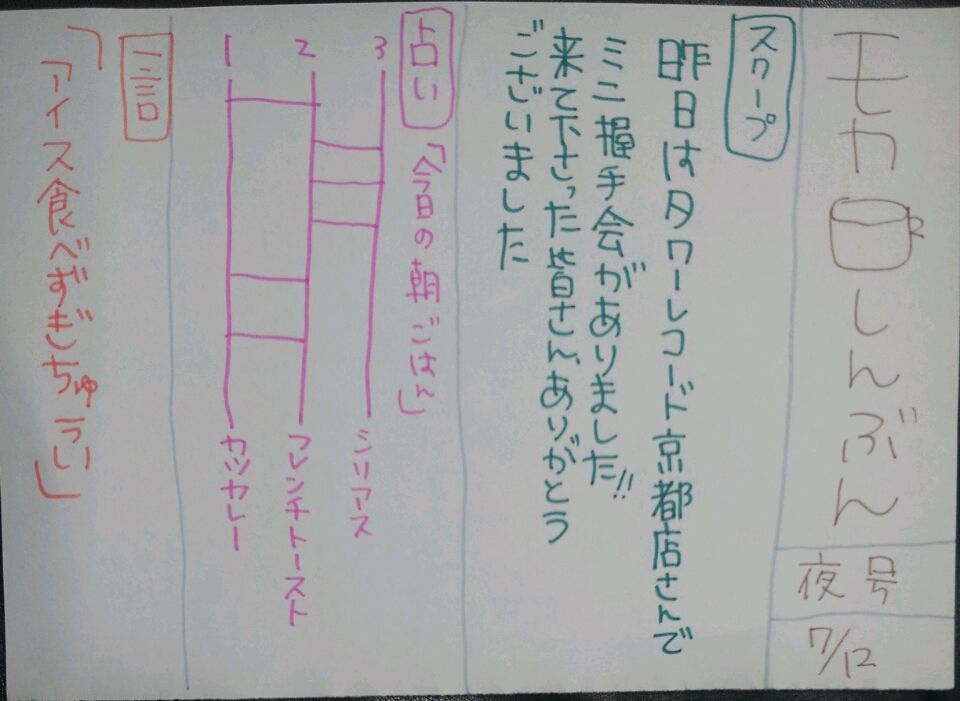 モカしんぶん
夜号
7/12
スクープ
昨日はタワーレコード京都店さんで
ミニ握手会がありました!!
来て下さった皆さんありがとう
ございました
占い「今日の朝ごはん」
3 シリアース
2 フレンチトースト
1 カツカレー
一言
「アイス食べずぎちゅうい」